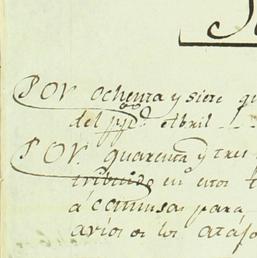 POR ochenta y siete qu
del ppdo. Abril
POR quarenta y tres
tribuido en estos
á comensar para
avios de los atajo